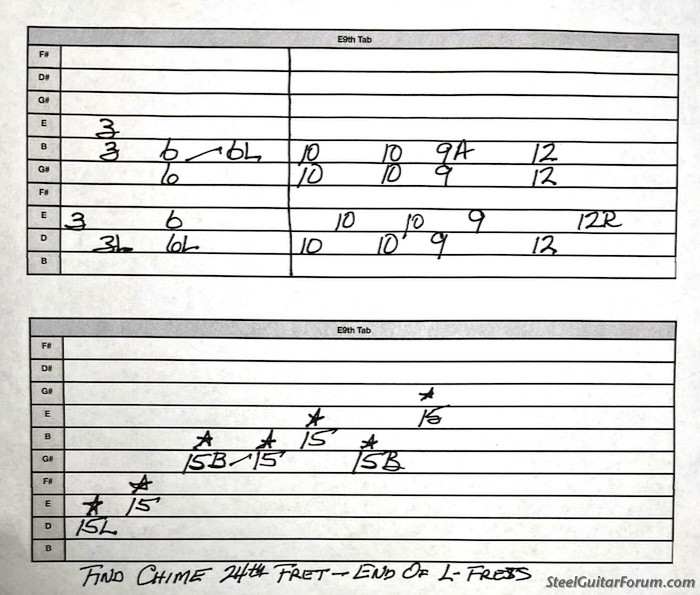 E9th Tab
F#
D#
G#
E 3
B 3 6 6L 10 10 9A 12
G# 6 10 10 9 12
F#
E 3 6 10 10 9 12R
D 3L 6L 10 10 9 12
B
E9th Tab
F#
D#
G#
E 15
B 15
G# 15B 15 15B
F#
E 15
D 15L
B
FIND CHIME 24th FRET - END OF L-FRETS
SteelGuitarForum.com